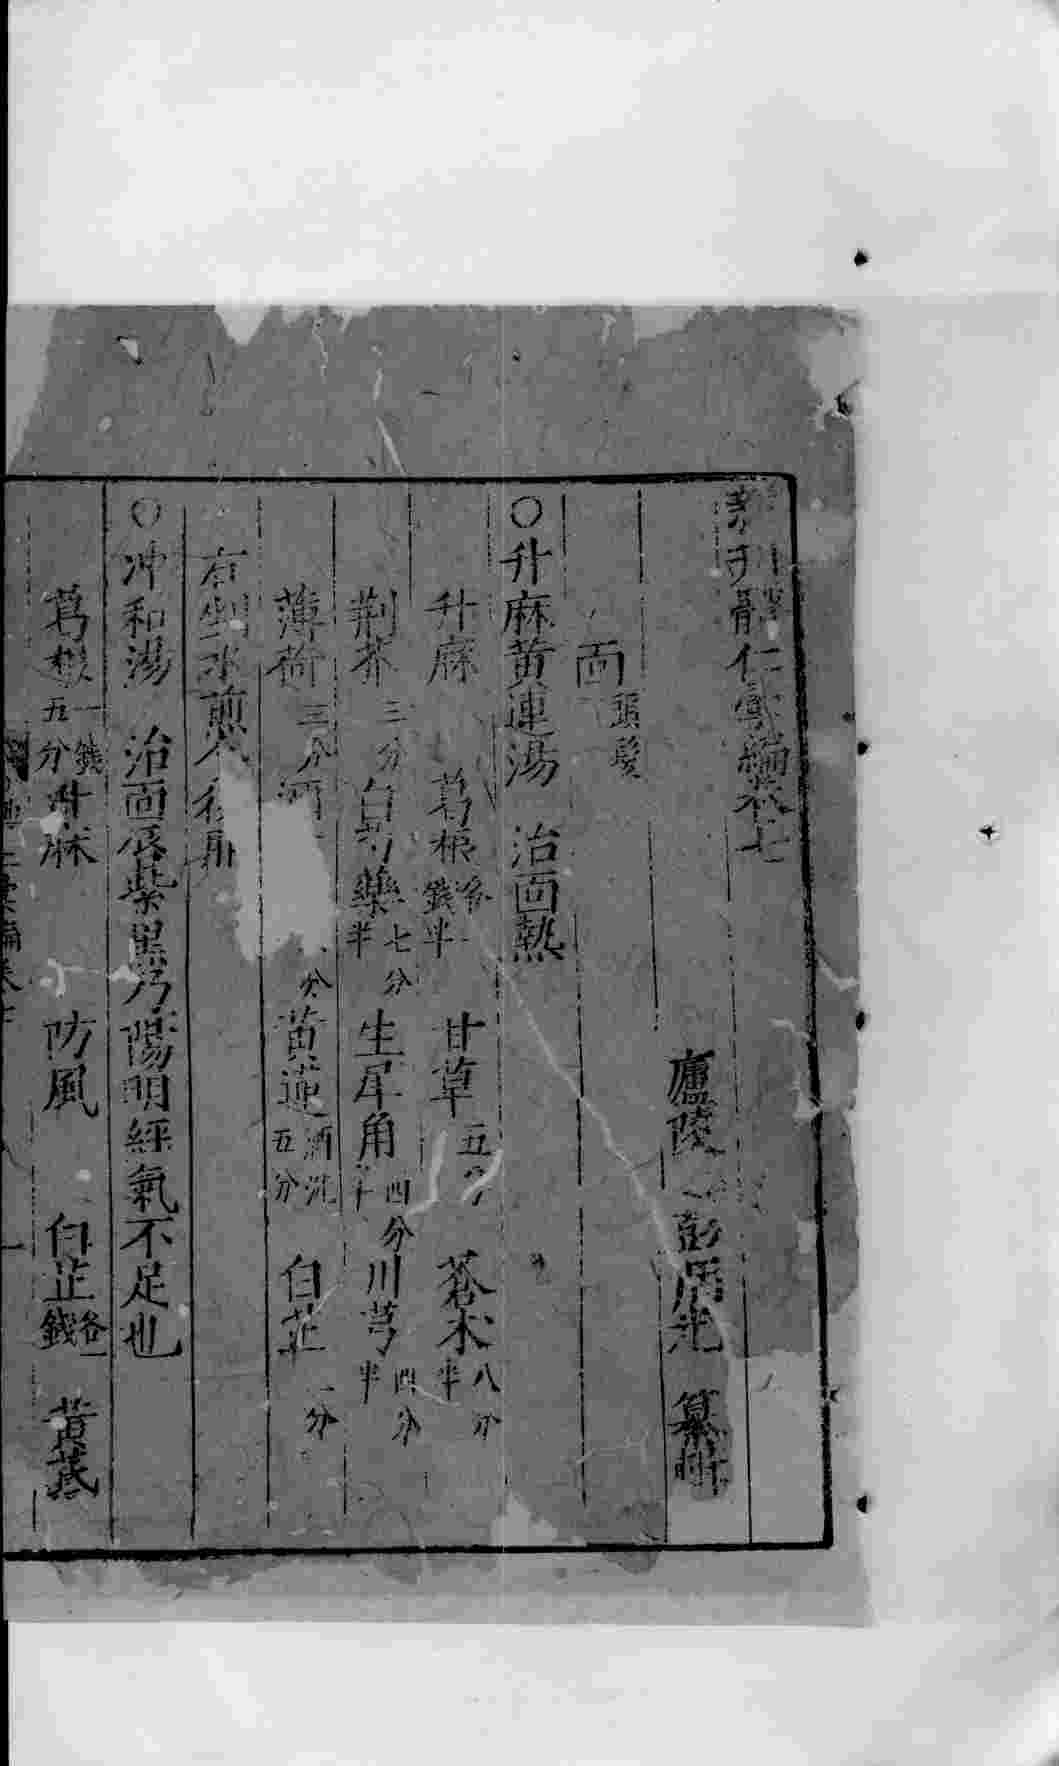 體仁彙編卷七
廬陵 彭用光 纂
面 鬚髮
〇升麻黄連湯 治面熱
升麻 葛根各一錢半 甘草五 蒼术八分半
荆芥三分 白芍藥七分半 生犀角四分 川芎四分半
薄荷三分 分 黄連酒洗五分 白芷一分
右剉水煎 服
〇冲和湯 治面唇紫黑乃陽明經氣不足也
葛根一錢五分 升麻 防風 白芷各一錢 黄芪
卷七
一